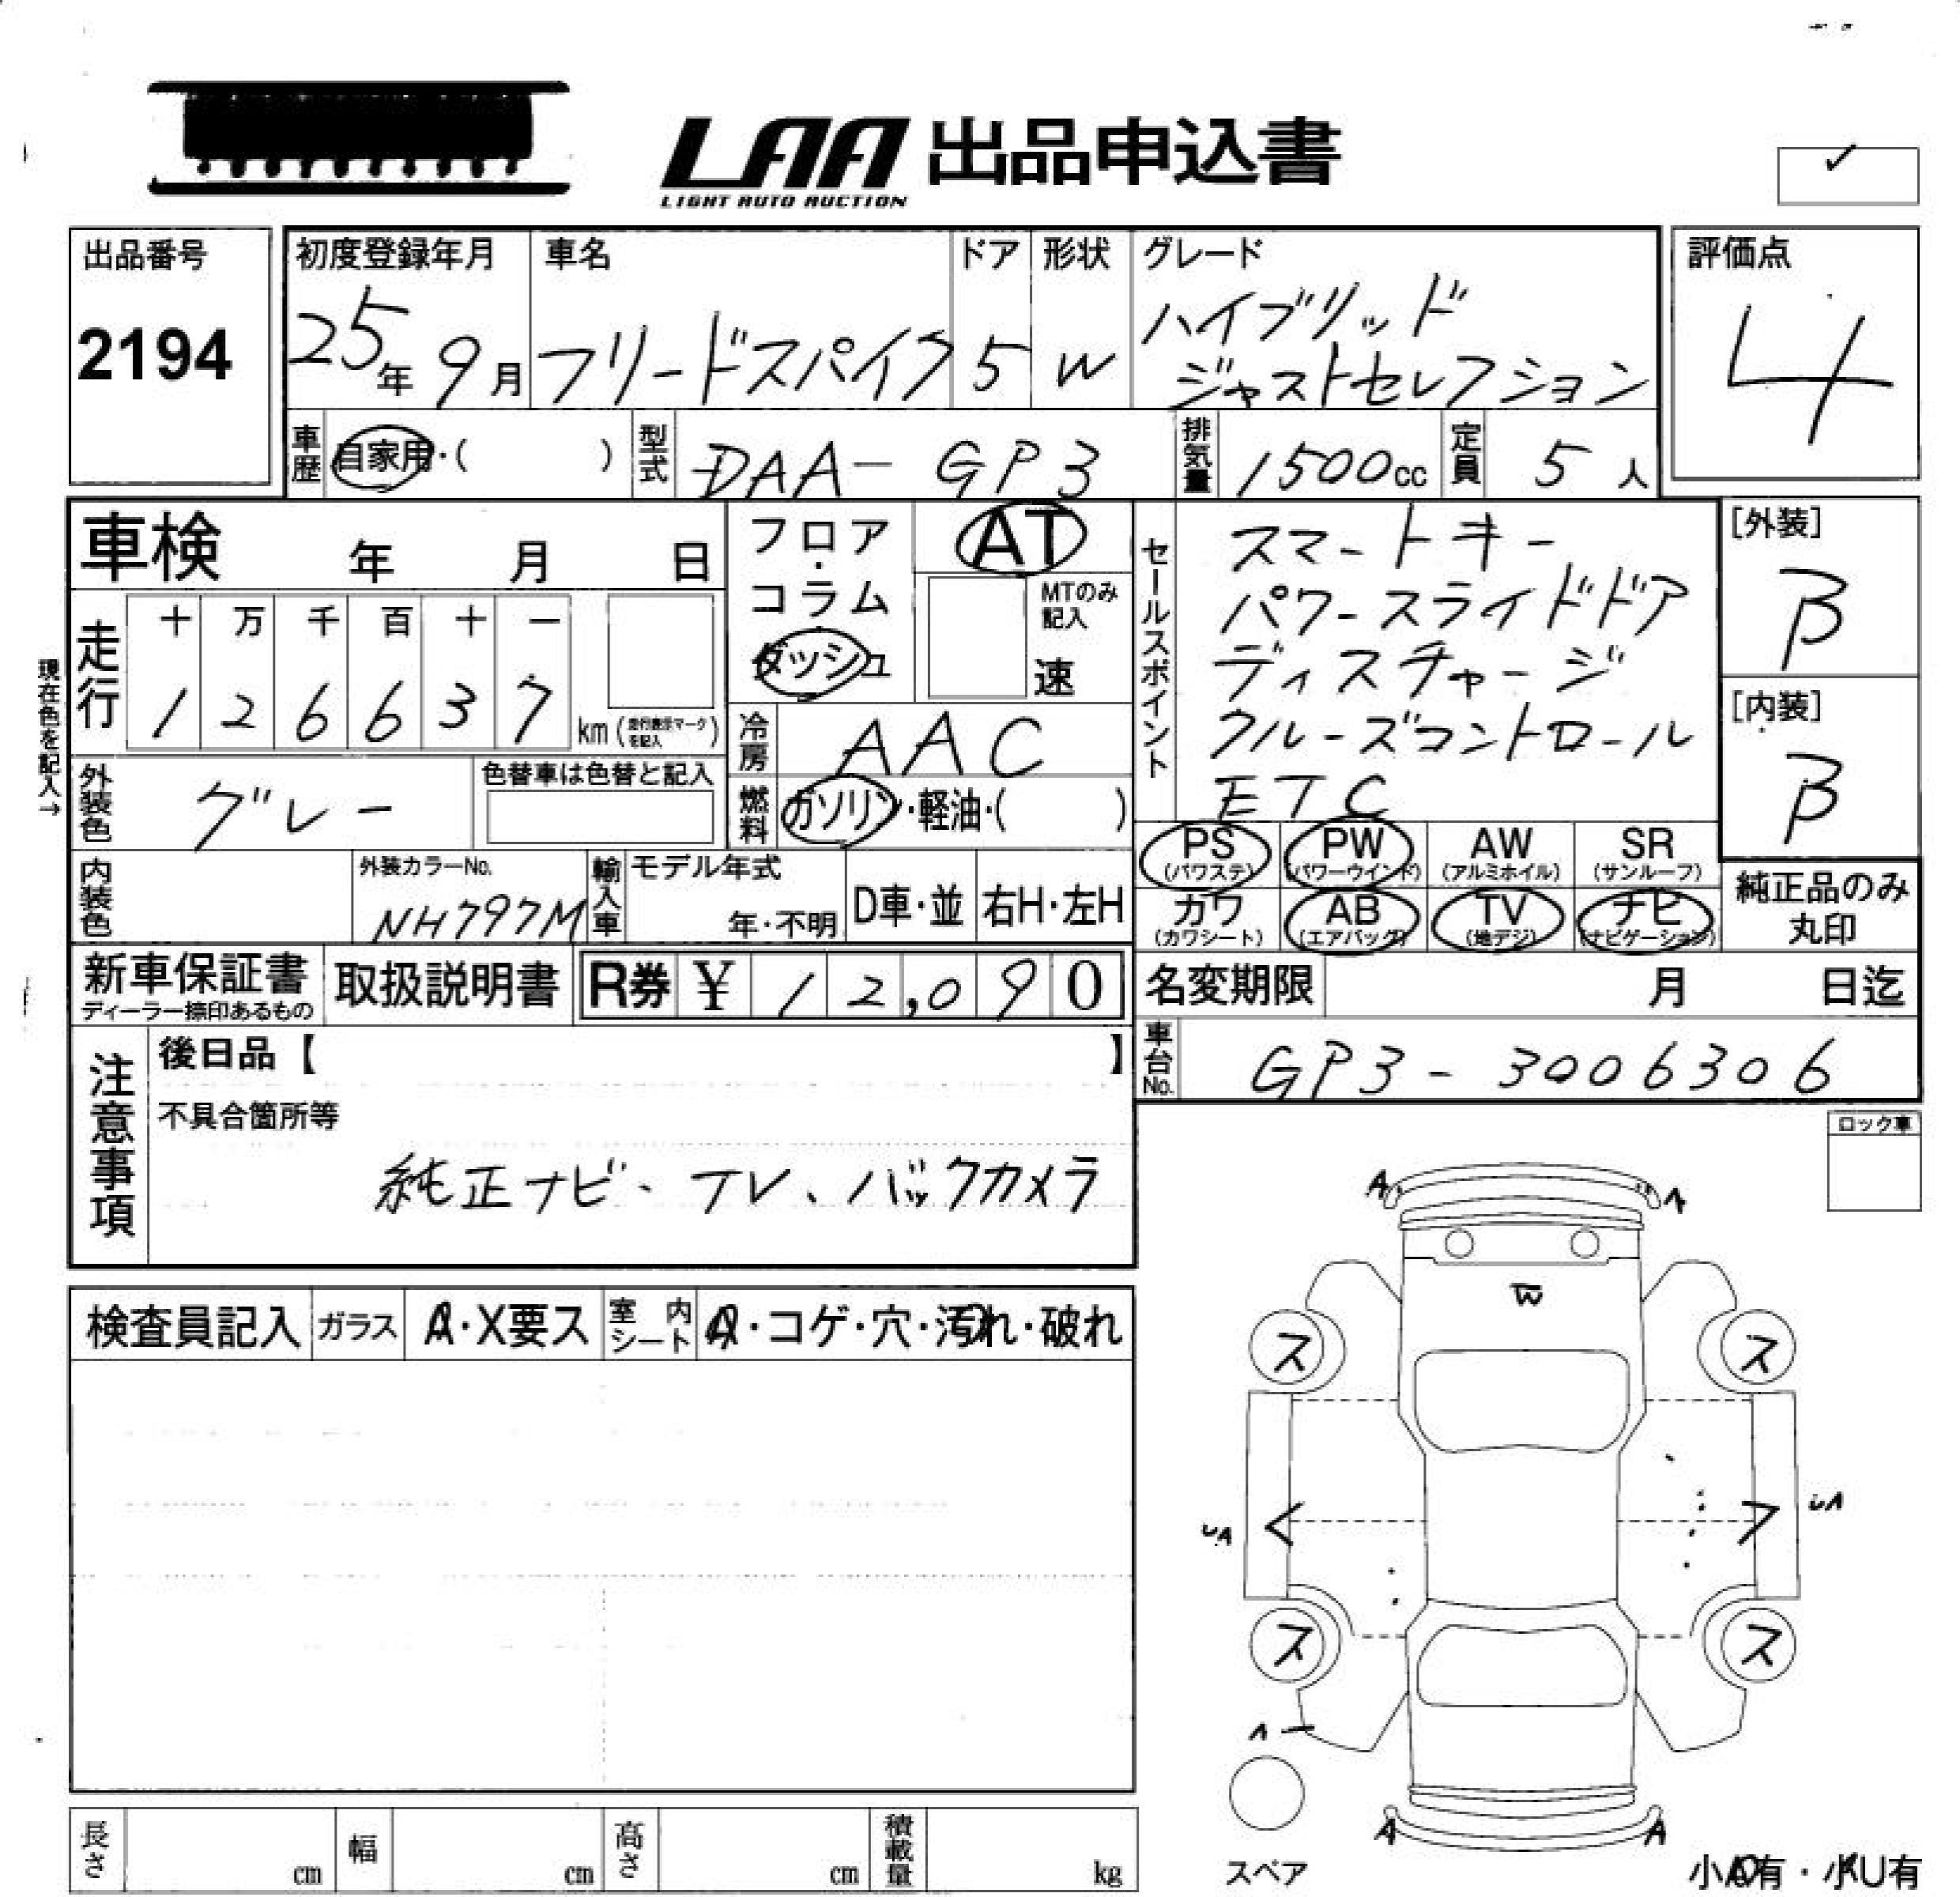 LAA 出品申込書
LIGHT AUTO AUCTION
✓
出品番号
2194
初度登録年月
25年9月
車名
フリードスパイク
ドア
5
形状
W
グレード
ハイブリッド
ジャストセレクション
評価点
4
車歴
自家用・( )
型式
DAA-GP3
排気量
1500cc
定員
5人
車検 年 月 日
フロア・
コラム・
ダッシュ
AT
MTのみ
記入
速
セールスポイント
スマートキー
パワースライドドア
ディスチャージ
クルーズコントロール
ETC
[外装]
B
[内装]
B
現在色を記入→
走行
十 万 千 百 十 一
1 2 6 6 3 7
km(走行表示マークを記入)
冷房
AAC
外装色
グレー
色替車は色替と記入
燃料
ガソリン・軽油・( )
PS
(パワステ)
PW
(パワーウインド)
AW
(アルミホイル)
SR
(サンルーフ)
カワ
(カワシート)
AB
(エアバック)
TV
(地デジ)
ナビ
(ナビゲーション)
純正品のみ
丸印
内装色
外装カラーNo.
NH797M
輸入車
モデル年式
年・不明
D車・並
右H・左H
新車保証書
ディーラー捺印あるもの
取扱説明書
R券 ¥ 12,090
名変期限 月 日迄
車台No.
GP3-3006306
注意事項
後日品【 】
不具合箇所等
純正ナビ、TV、バックカメラ
ロック車
検査員記入
ガラス
A・X要ス
室内
シート
・コゲ・穴・汚れ・破れ
A A
ス ス
UA UA
ス ス
A
A A
スペア
小有・小U有
長さ cm
幅 cm
高さ cm
積載量 kg